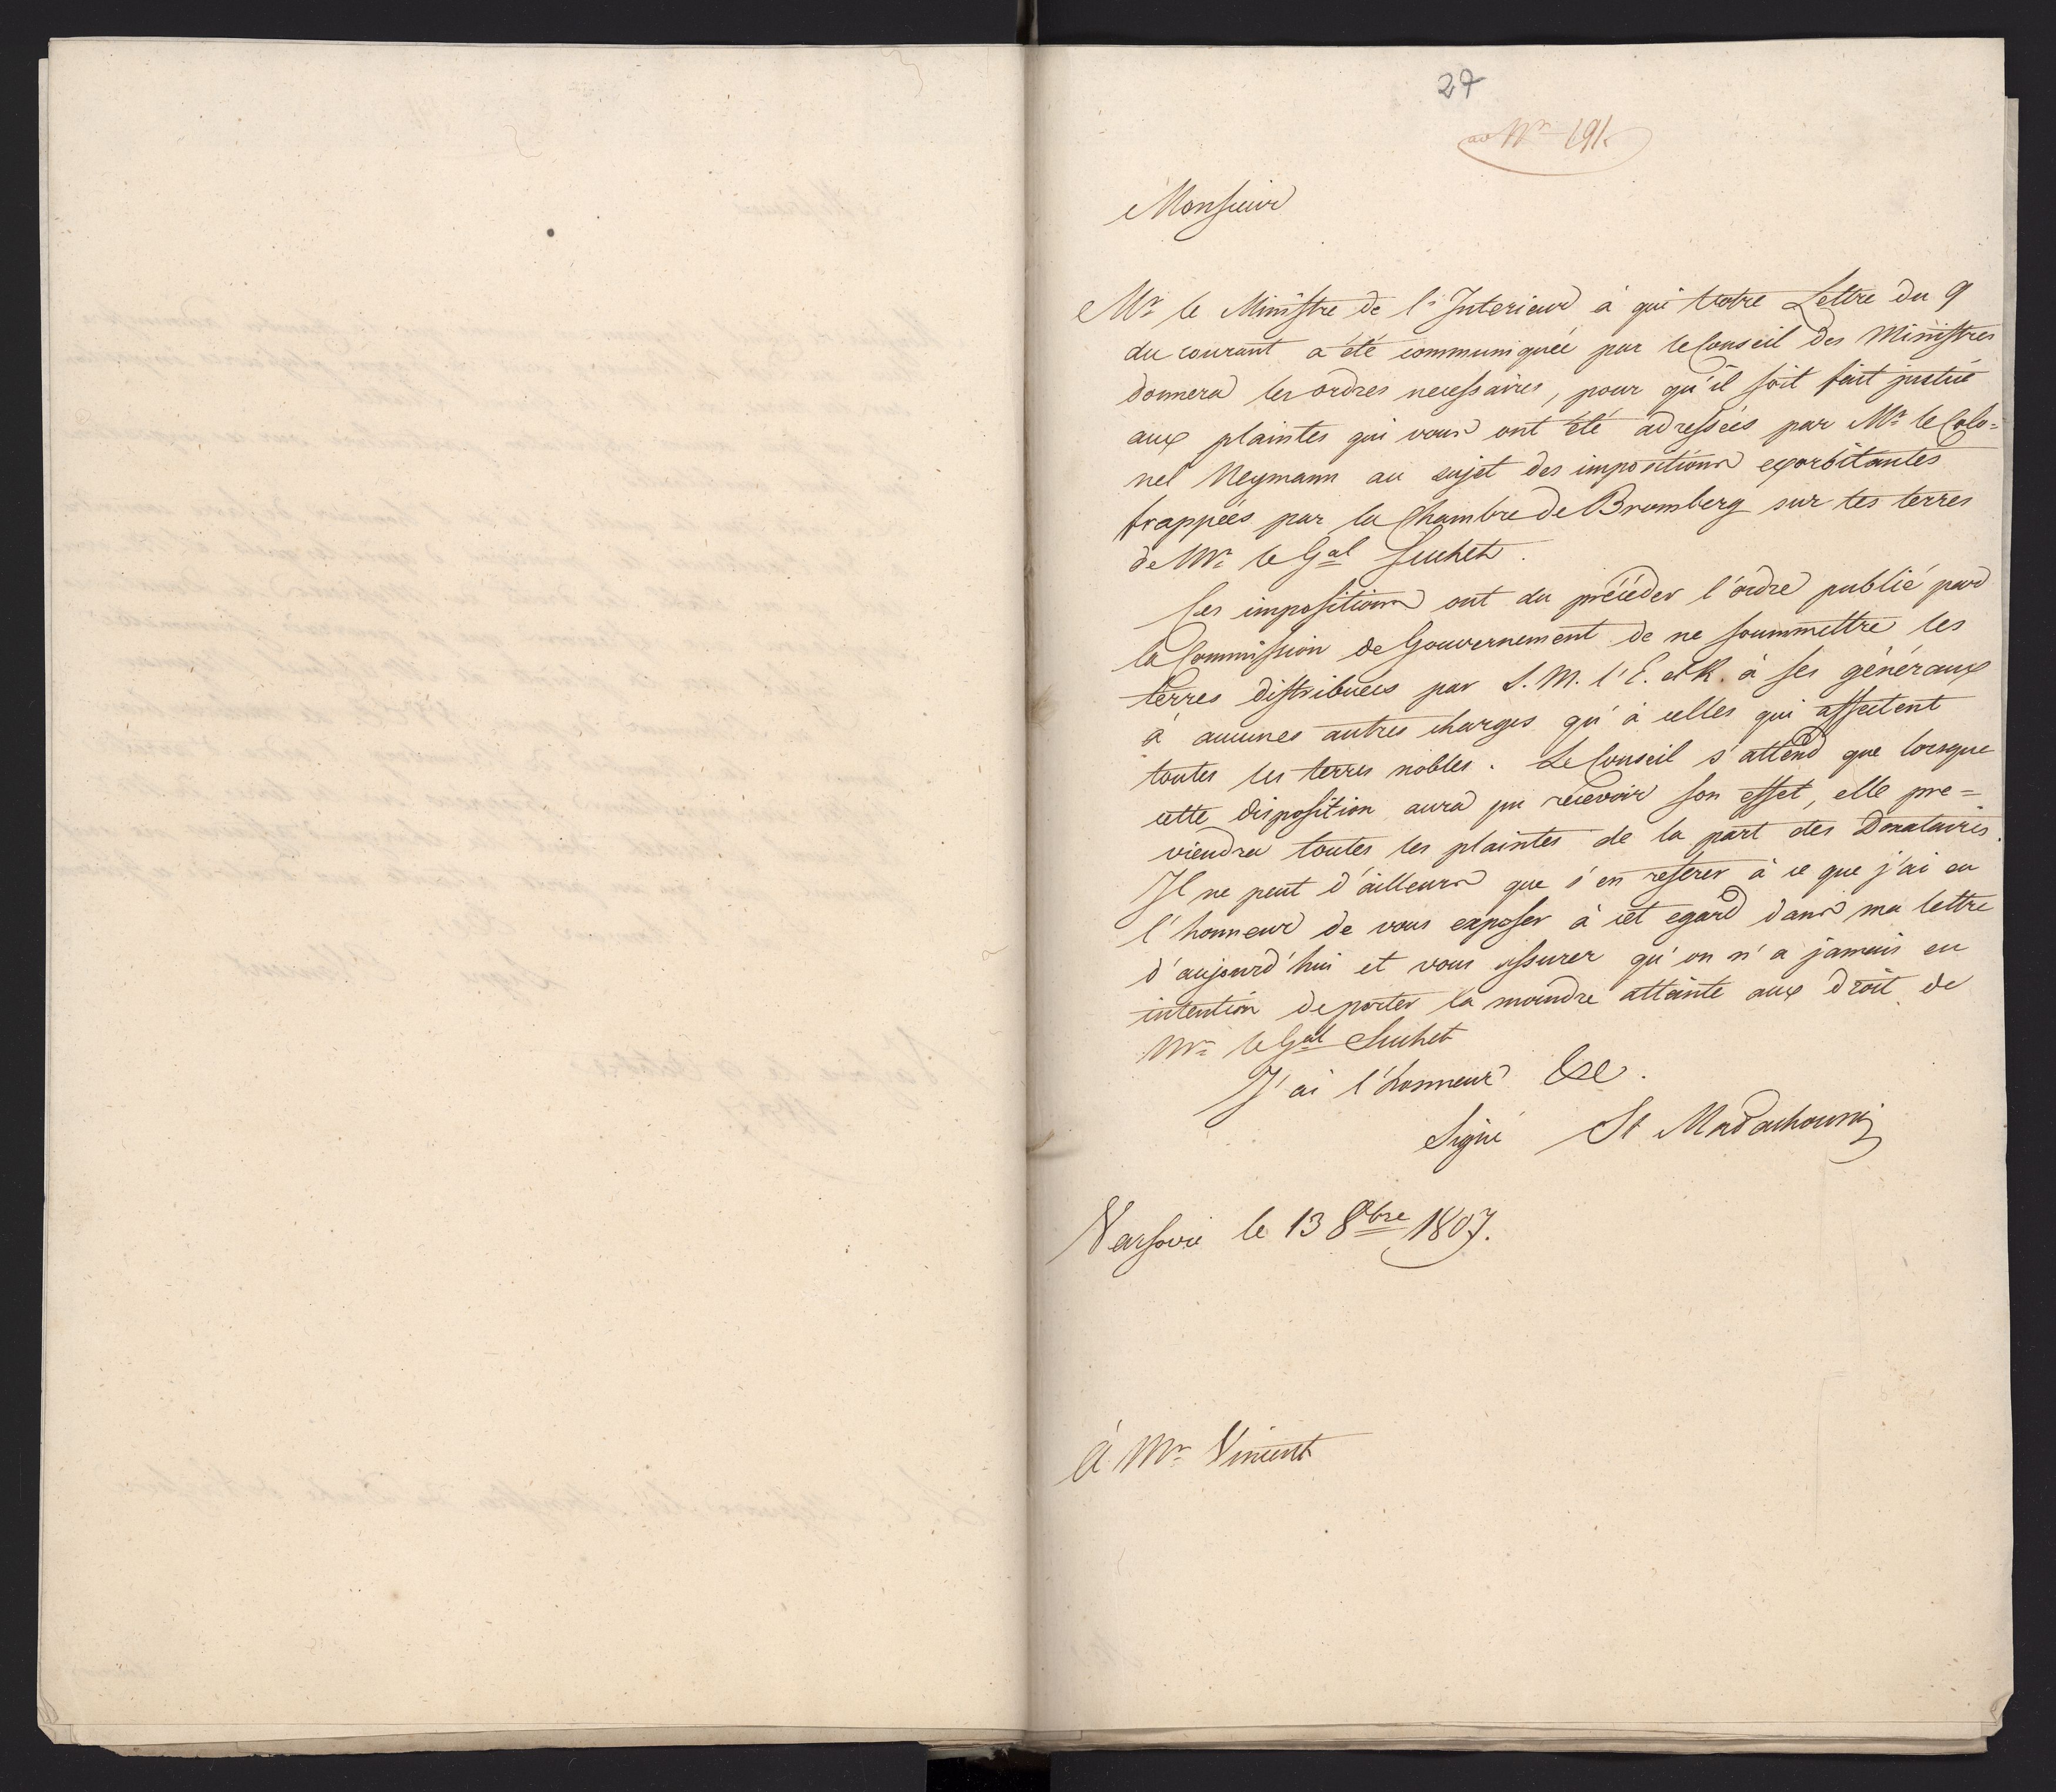 27
ad Nr 191.
Monsieur
Mr le Ministre de l'Interieur à qui Votre Lettre du 9
du courant a été communiquée par le Conseil des Ministres
donnera les ordres necessaires, pour qu'il soit fait justice
aux plaintes qui vous ont été adressées par Mr le Colo=
nel Neymann au sujet des impositions exorbitantes
frappées par la Chambre de Bromberg sur les terres
de Mr le Gal Suchet.
Ces impositions ont du précéder l'ordre publié par
la Commission de Gouvernement de ne soummettre les
terres distribuées par S. M. l'E. et R. à ses généraux
à aucunes autres charges qu'à celles qui affectent
toutes les terres nobles. Le Conseil s'attend que lorsque
cette disposition aura pu récevoir son effet, elle pre=
viendra toutes les plaintes de la part des Donataires.
Il ne peut d'ailleurs que s'en reférer à ce que j'ai eu
l'honneur de vous exposer à cet egard dans ma lettre
d'aujourd'hui et vous assurer qu'on n'a jamais eu
intention de porter la moindre atteinte aux droit de
Mr le Gal Suchet
J'ai l'honneur &c.
Signé St Małachowski
Varsovie le 13 8bre 1807.
À Mr Vincent